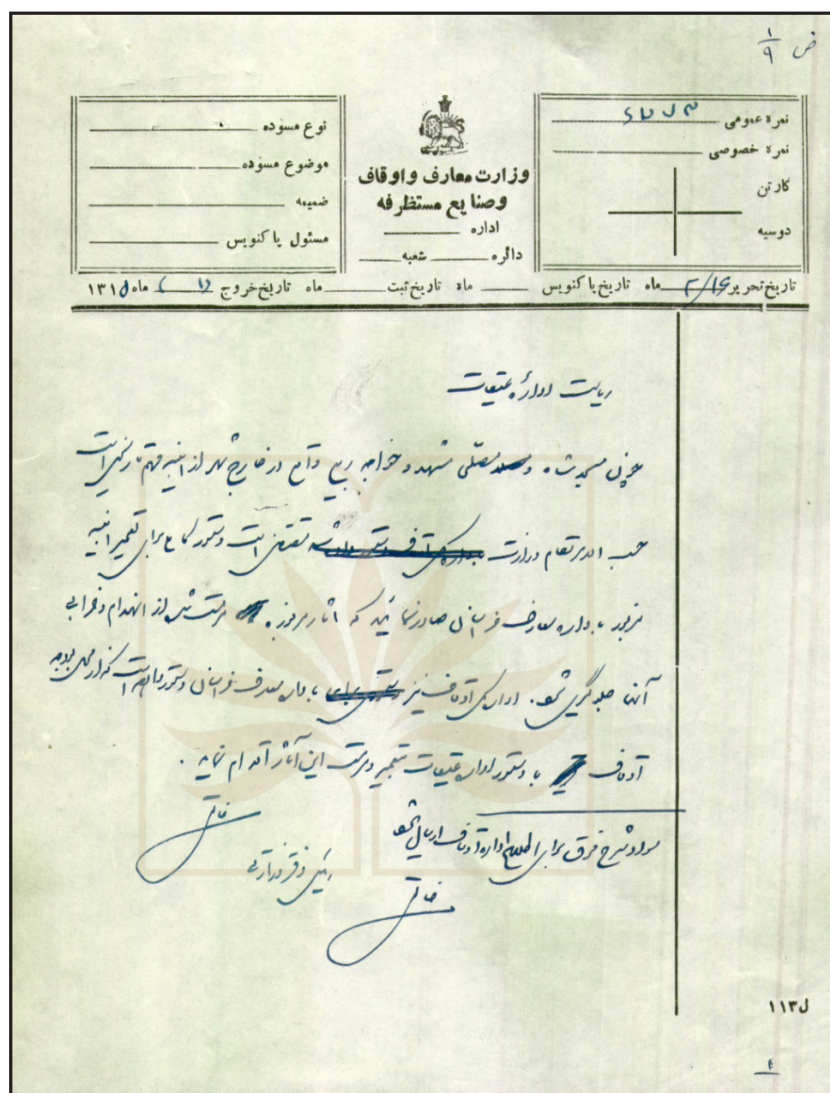 ض ۱/۹
نمره عمومی
نمره خصوصی
کارتن
دوسیه
وزارت معارف و اوقاف
وصنایع مستظرفه
اداره
دائره شعبه
نوع مسوده
موضوع مسوده
ضمیمه
مسئول پاکنویس
تاریخ تحریر ۲/۱۶ ماه تاریخ پاکنویس ماه تاریخ ثبت ماه تاریخ خروج ماه ۱۳۱۵
ریاست اداره عتیقات
چون مسجد شاه و مصلی مشهد و خواجه ربیع واقع در خارج شهر از ابنیه مهم تاریخی است
حسب الامر مقام وزارت مقتضی است دستور برای تعمیر ابنیه
مزبور باداره معارف خراسان صادر نمائید که آثار مزبوره مرمت شده از انهدام و خرابی
آنها جلوگیری شود. اداره کل اوقاف نیز باداره معارف خراسان دستور داده است که از محل بودجه
اوقاف با دستور اداره عتیقات بتعمیر و مرمت این آثار اقدام نماید.
سواد شرح فوق برای اطلاع اداره اوقاف ارسال شود
رئیس دفتر وزارتی
ل۱۱۳